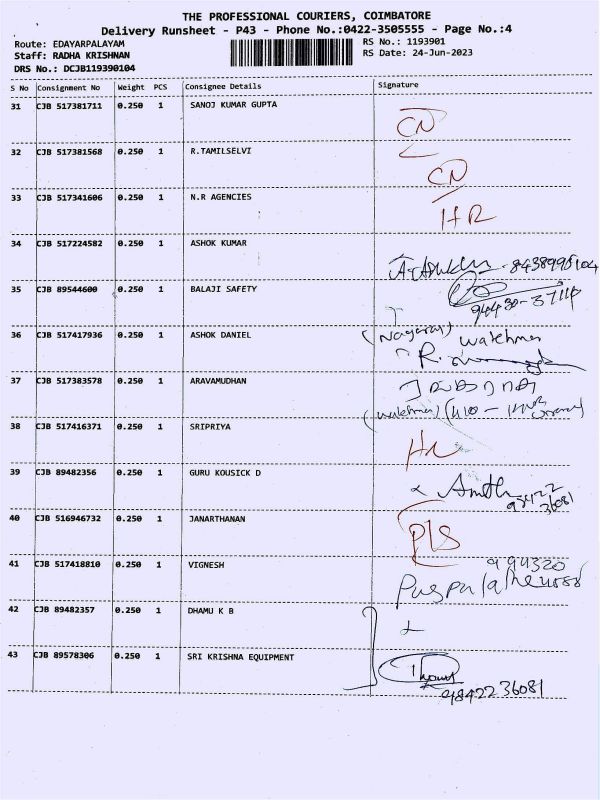 THE PROFESSIONAL COURIERS, COIMBATORE
Delivery Runsheet - P43 - Phone No.:0422-3505555 - Page No.:4
Route: EDAYARPALAYAM
RS No.: 1193901
Staff: RADHA KRISHNAN
RS Date: 24-Jun-2023
DRS No.: DCJB119390104
S No Consignment No Weight PCS Consignee Details Signature
31 CJB 517381711 0.250 1 SANOJ KUMAR GUPTA
CN
32 CJB 517381568 0.250 1 R.TAMILSELVI
CN
33 CJB 517341606 0.250 1 N.R AGENCIES
HR
34 CJB 517224582 0.250 1 ASHOK KUMAR
35 CJB 89544600 0.250 1 BALAJI SAFETY
36 CJB 517417936 0.250 1 ASHOK DANIEL
(Nagaraj) watchmen
37 CJB 517383578 0.250 1 ARAVAMUDHAN
(watchmen)
38 CJB 517416371 0.250 1 SRIPRIYA
39 CJB 89482356 0.250 1 GURU KOUSICK D
98422
36081
40 CJB 516946732 0.250 1 JANARTHANAN
P/S
41 CJB 517418810 0.250 1 VIGNESH
42 CJB 89482357 0.250 1 DHAMU K B
43 CJB 89578306 0.250 1 SRI KRISHNA EQUIPMENT
98422 36081